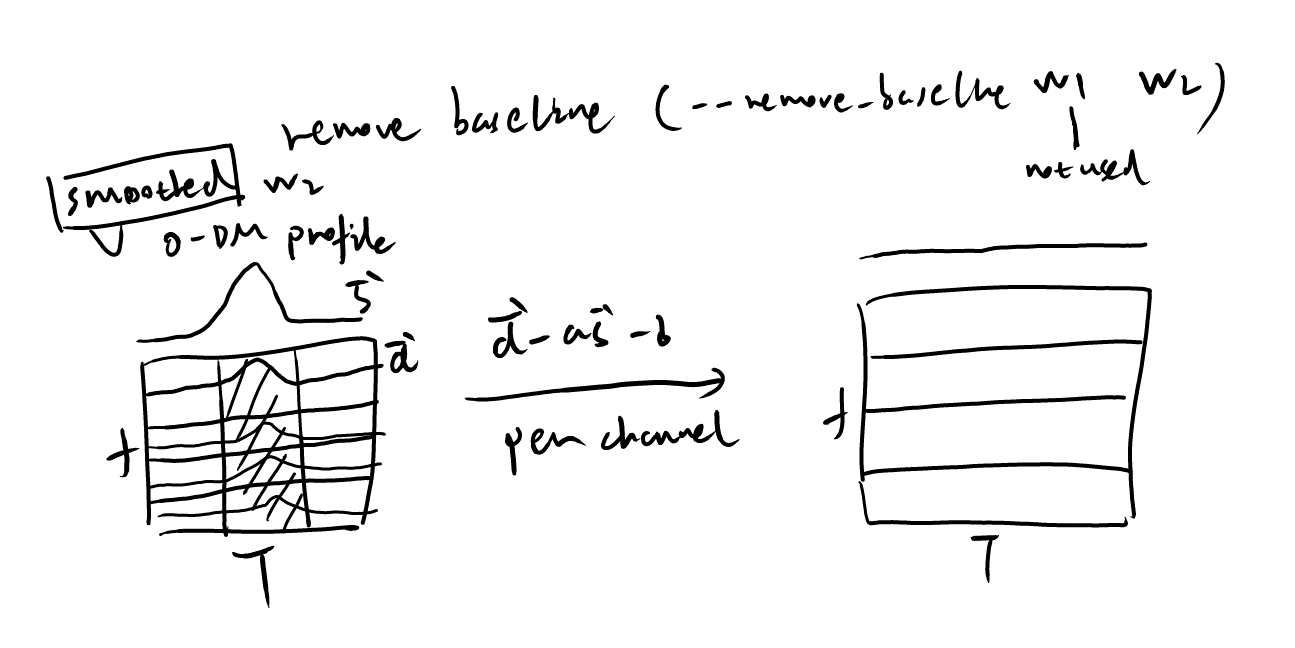 remove baseline (--remove-baseline w1 w2)
not used
smoothed w2
0-DM profile
s⃗
d⃗
d⃗ - as⃗ - b
per channel
f
T
f
T